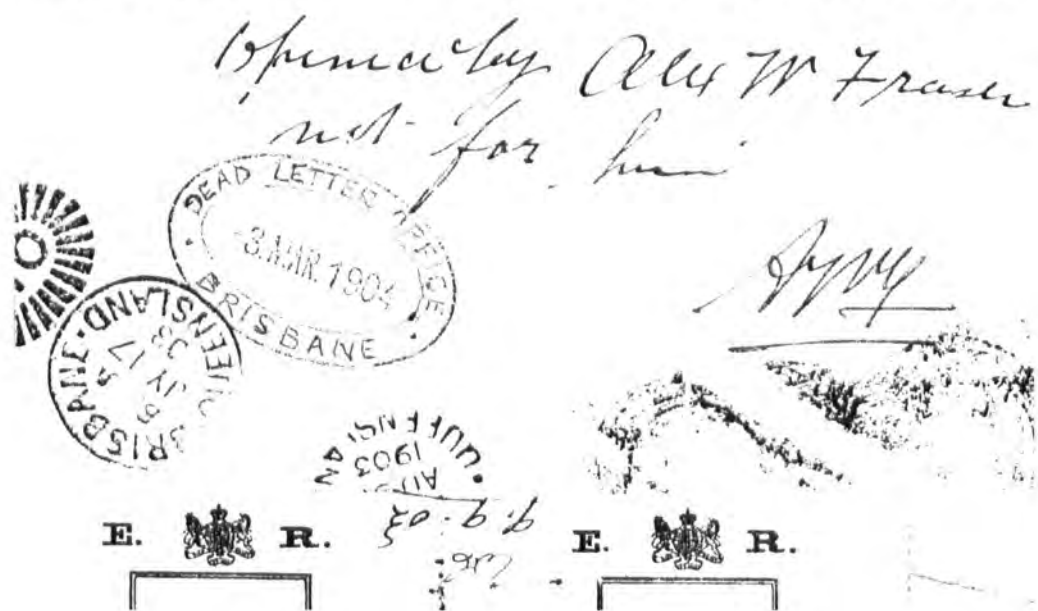 Opened by Alex W Fraser
not for him
DEAD LETTER OFFICE
3 MAR. 1904
BRISBANE
BRISBANE. QUEENSLAND
JY 17
03
QUEENSLAN
AU
1903
9.9.03
E. R. E. R.